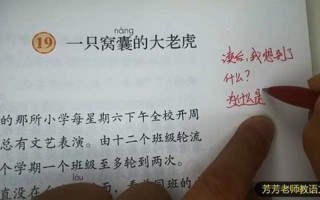 nāng
19 一只窝囊的大老虎
读后，我想到了
什么？
为什么是
的那所小学每星期六下午全校开周
总有文艺表演。由十二个班级轮流
个学期一个班级至多轮到两次。
lóu
直没在
面，看着同班的
芳芳老师教语文